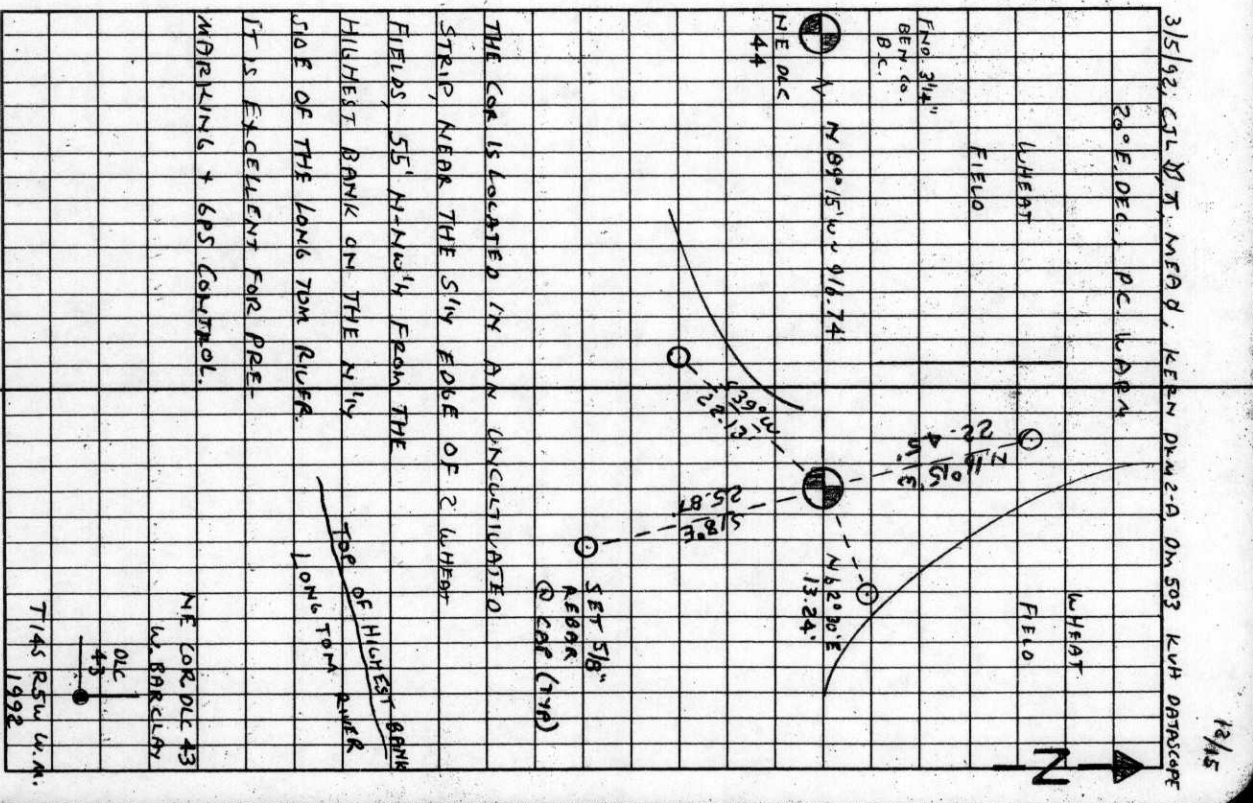 12/15
3/5/92, CJL
MEAD, KERN DKM2-A DM 503 KVH DATASCOPE
20° E. DEC., P.C. WARM
WHEAT
FIELD
WHEAT
FIELD
N
FND. 3 1/4"
BEN. CO.
B.C.
NE DLC
44
N 89° 15' W ~ 916.74'
N 16° 15' E
22.45'
N 62° 30' E
13.24'
39° W
22.13'
S 18° E
25.87'
SET 5/8"
REBAR
CAP (TYP)
THE COR. IS LOCATED IN AN UNCULTIVATED
STRIP, NEAR THE S'LY EDGE OF 2 WHEAT
FIELDS, 55' N-NW'LY FROM THE
HIGHEST BANK ON THE N'LY
SIDE OF THE LONG TOM RIVER.
IT IS EXCELLENT FOR PRE-
MARKING + GPS CONTROL.
TOP OF HIGHEST BANK
LONG TOM RIVER
NE COR DLC 43
W. BARCLAY
DLC
43
T14S R5W W.M.
1992